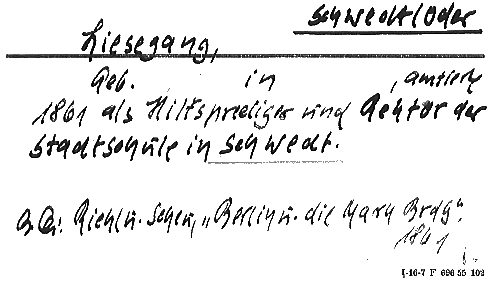 Schwedt/Oder
Liesegang,
Geb. , in , amtierte
1861 als Hilfsprediger und Rektor der
Stadtschule in Schwedt.
Riehl u. Scheu, „Berlin u. die Mark Brdg".
1861
I-16-7 F 696 55 102